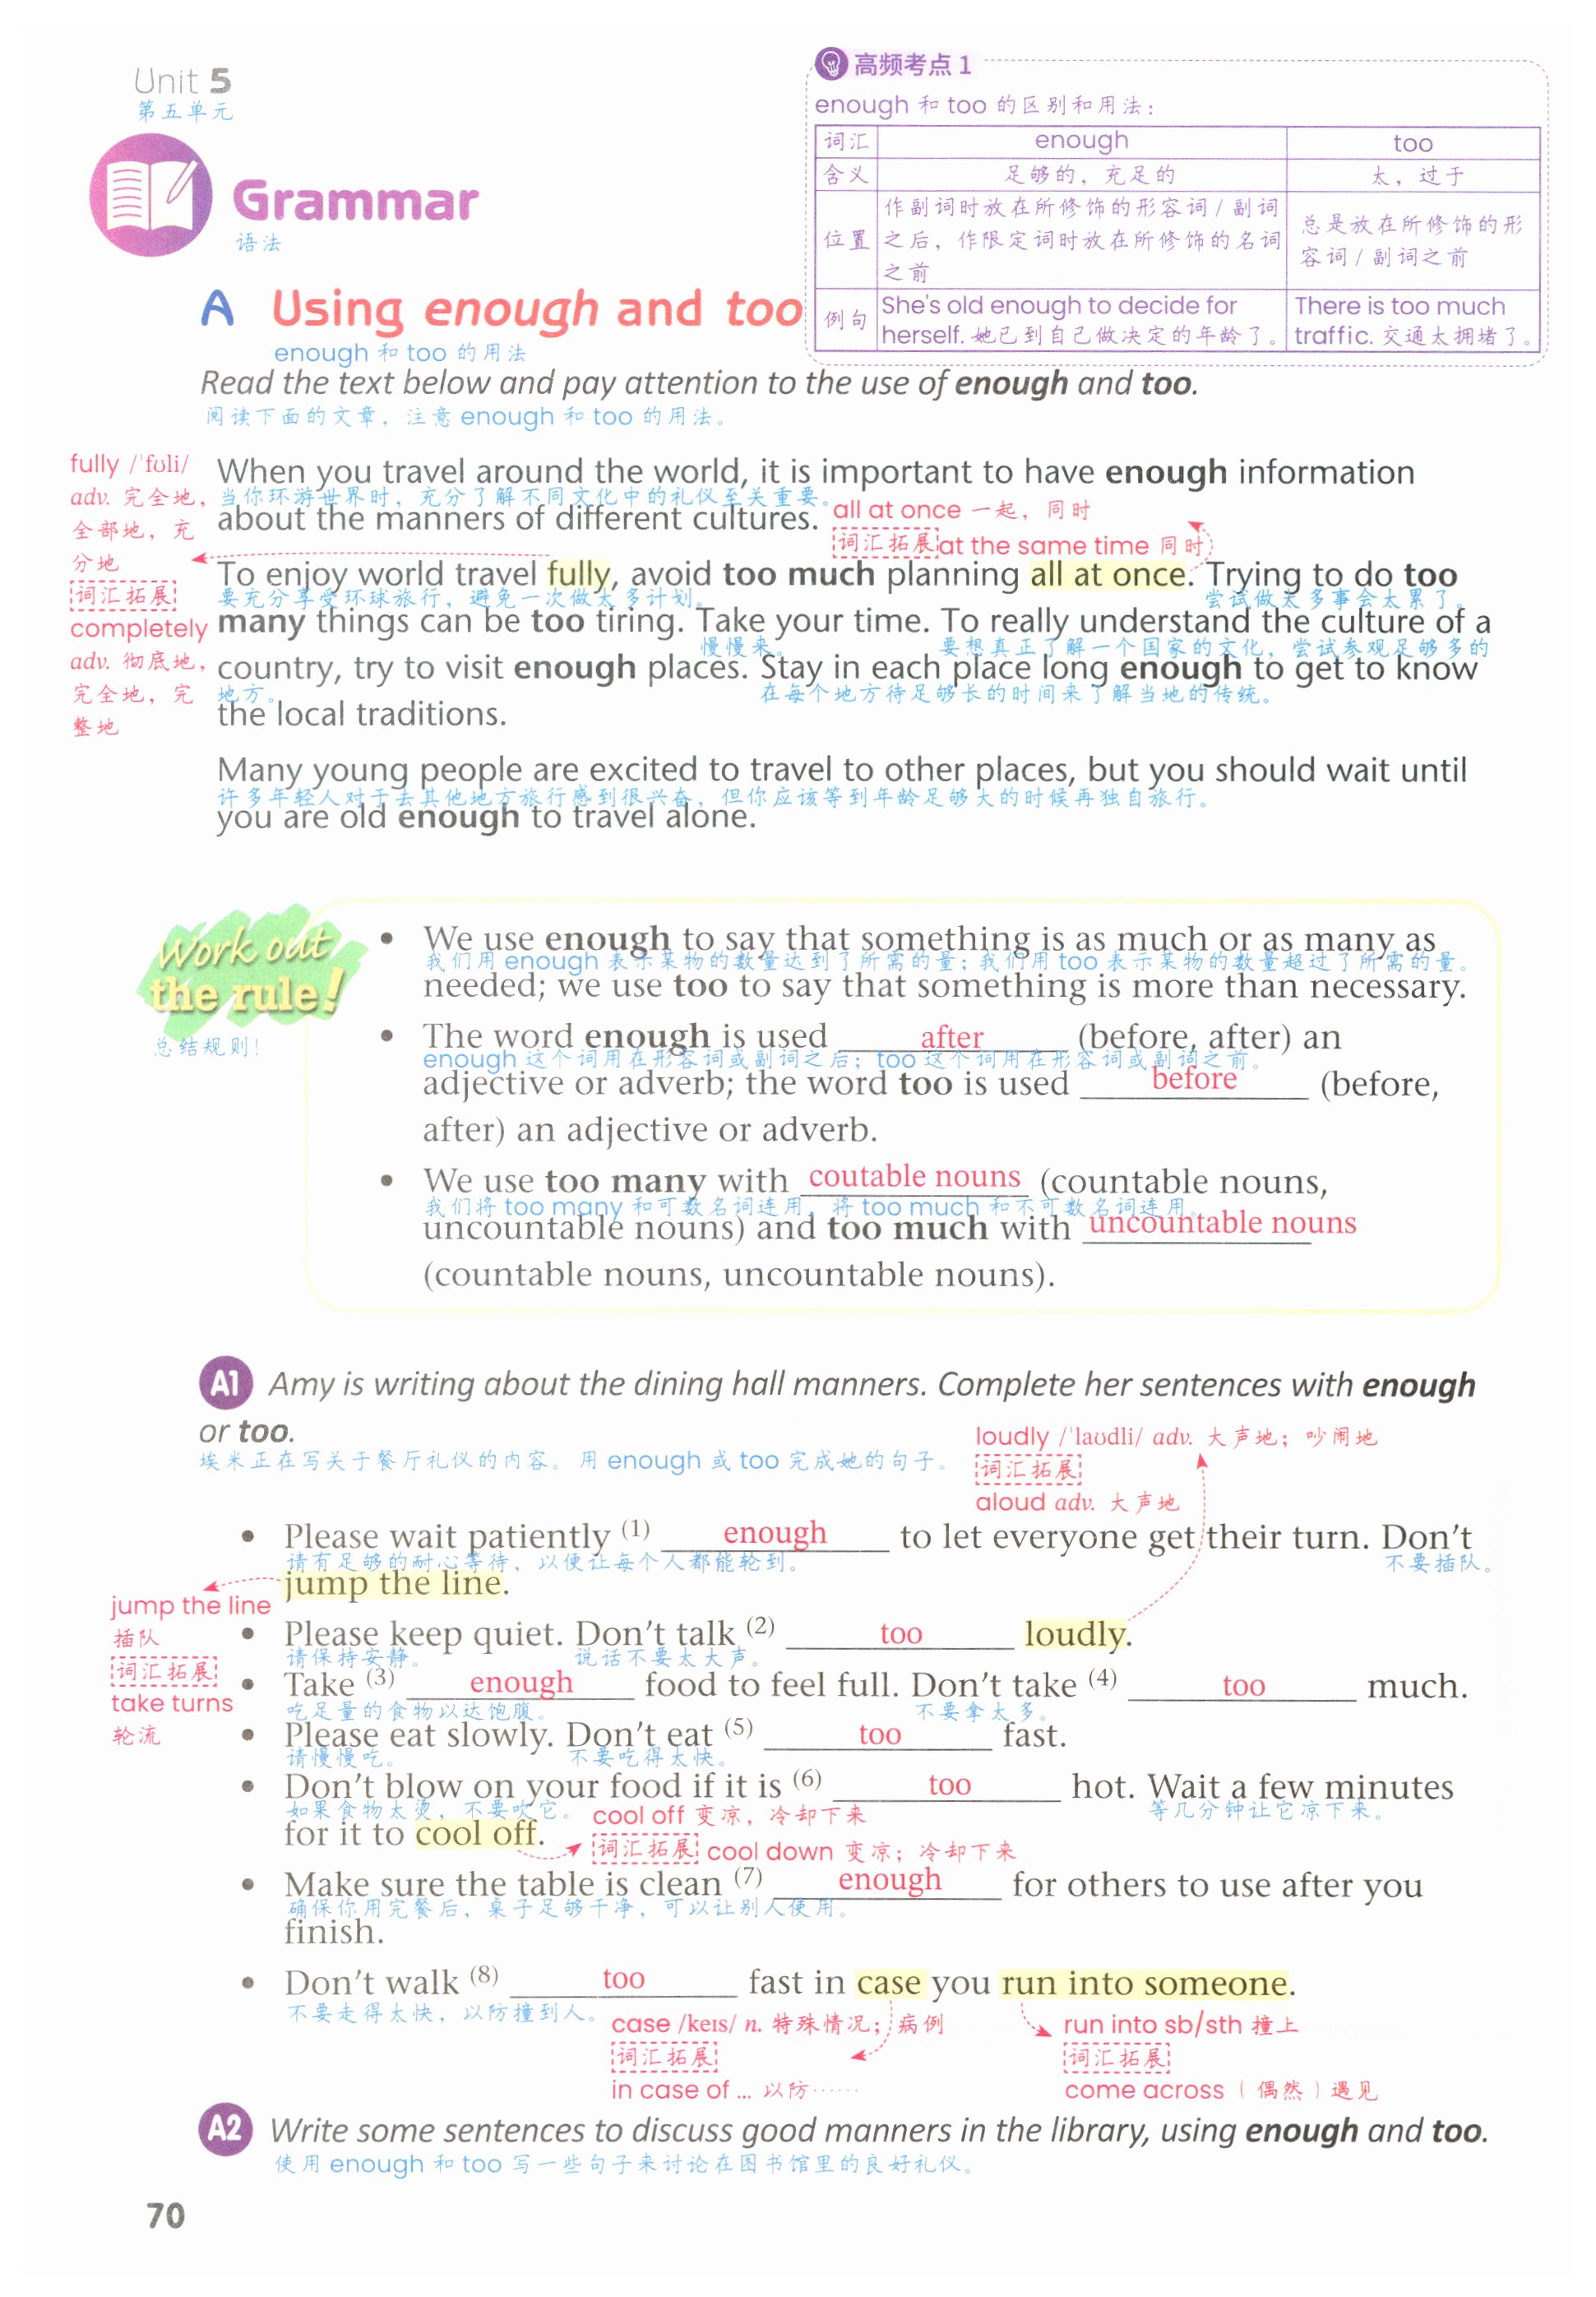 Unit 5
第五单元
Grammar
语法
高频考点 1
enough 和 too 的区别和用法：
词汇 enough too
含义 足够的，充足的 太，过于
位置 作副词时放在所修饰的形容词 / 副词之后，作限定词时放在所修饰的名词之前 总是放在所修饰的形容词 / 副词之前
例句 She's old enough to decide for herself. 她已到自己做决定的年龄了。 There is too much traffic. 交通太拥堵了。
A Using enough and too
enough 和 too 的用法
Read the text below and pay attention to the use of enough and too.
阅读下面的文章，注意 enough 和 too 的用法。
fully /ˈfʊli/
adv. 完全地，
全部地，充
分地
词汇拓展
completely
adv. 彻底地，
完全地，完
整地
When you travel around the world, it is important to have enough information
当你环游世界时，充分了解不同文化中的礼仪至关重要。
about the manners of different cultures.
all at once 一起，同时
词汇拓展 at the same time 同时
To enjoy world travel fully, avoid too much planning all at once. Trying to do too
要充分享受环球旅行，避免一次做太多计划。 尝试做太多事会太累了。
many things can be too tiring. Take your time. To really understand the culture of a
慢慢来。 要想真正了解一个国家的文化，尝试参观足够多的
country, try to visit enough places. Stay in each place long enough to get to know
地方。 在每个地方待足够长的时间来了解当地的传统。
the local traditions.
Many young people are excited to travel to other places, but you should wait until
许多年轻人对于去其他地方旅行感到很兴奋，但你应该等到年龄足够大的时候再独自旅行。
you are old enough to travel alone.
Work out
the rule!
总结规则！
• We use enough to say that something is as much or as many as
我们用 enough 表示某物的数量达到了所需的量；我们用 too 表示某物的数量超过了所需的量。
needed; we use too to say that something is more than necessary.
• The word enough is used after (before, after) an
enough 这个词用在形容词或副词之后；too 这个词用在形容词或副词之前。
adjective or adverb; the word too is used before (before,
after) an adjective or adverb.
• We use too many with coutable nouns (countable nouns,
我们将 too many 和可数名词连用，将 too much 和不可数名词连用。
uncountable nouns) and too much with uncountable nouns
(countable nouns, uncountable nouns).
A1 Amy is writing about the dining hall manners. Complete her sentences with enough
or too.
埃米正在写关于餐厅礼仪的内容。用 enough 或 too 完成她的句子。
loudly /ˈlaʊdli/ adv. 大声地；吵闹地
词汇拓展
aloud adv. 大声地
• Please wait patiently (1) enough to let everyone get their turn. Don't
请有足够的耐心等待，以便让每个人都能轮到。 不要插队。
jump the line.
jump the line
插队
词汇拓展
take turns
轮流
• Please keep quiet. Don't talk (2) too loudly.
请保持安静。 说话不要太大声。
• Take (3) enough food to feel full. Don't take (4) too much.
吃足量的食物以达饱腹。 不要拿太多。
• Please eat slowly. Don't eat (5) too fast.
请慢慢吃。 不要吃得太快。
• Don't blow on your food if it is (6) too hot. Wait a few minutes
如果食物太烫，不要吹它。 等几分钟让它凉下来。
for it to cool off.
cool off 变凉，冷却下来
词汇拓展 cool down 变凉；冷却下来
• Make sure the table is clean (7) enough for others to use after you
确保你用完餐后，桌子足够干净，可以让别人使用。
finish.
• Don't walk (8) too fast in case you run into someone.
不要走得太快，以防撞到人。
case /keɪs/ n. 特殊情况；病例
词汇拓展
in case of ... 以防……
run into sb/sth 撞上
词汇拓展
come across（偶然）遇见
A2 Write some sentences to discuss good manners in the library, using enough and too.
使用 enough 和 too 写一些句子来讨论在图书馆里的良好礼仪。
70